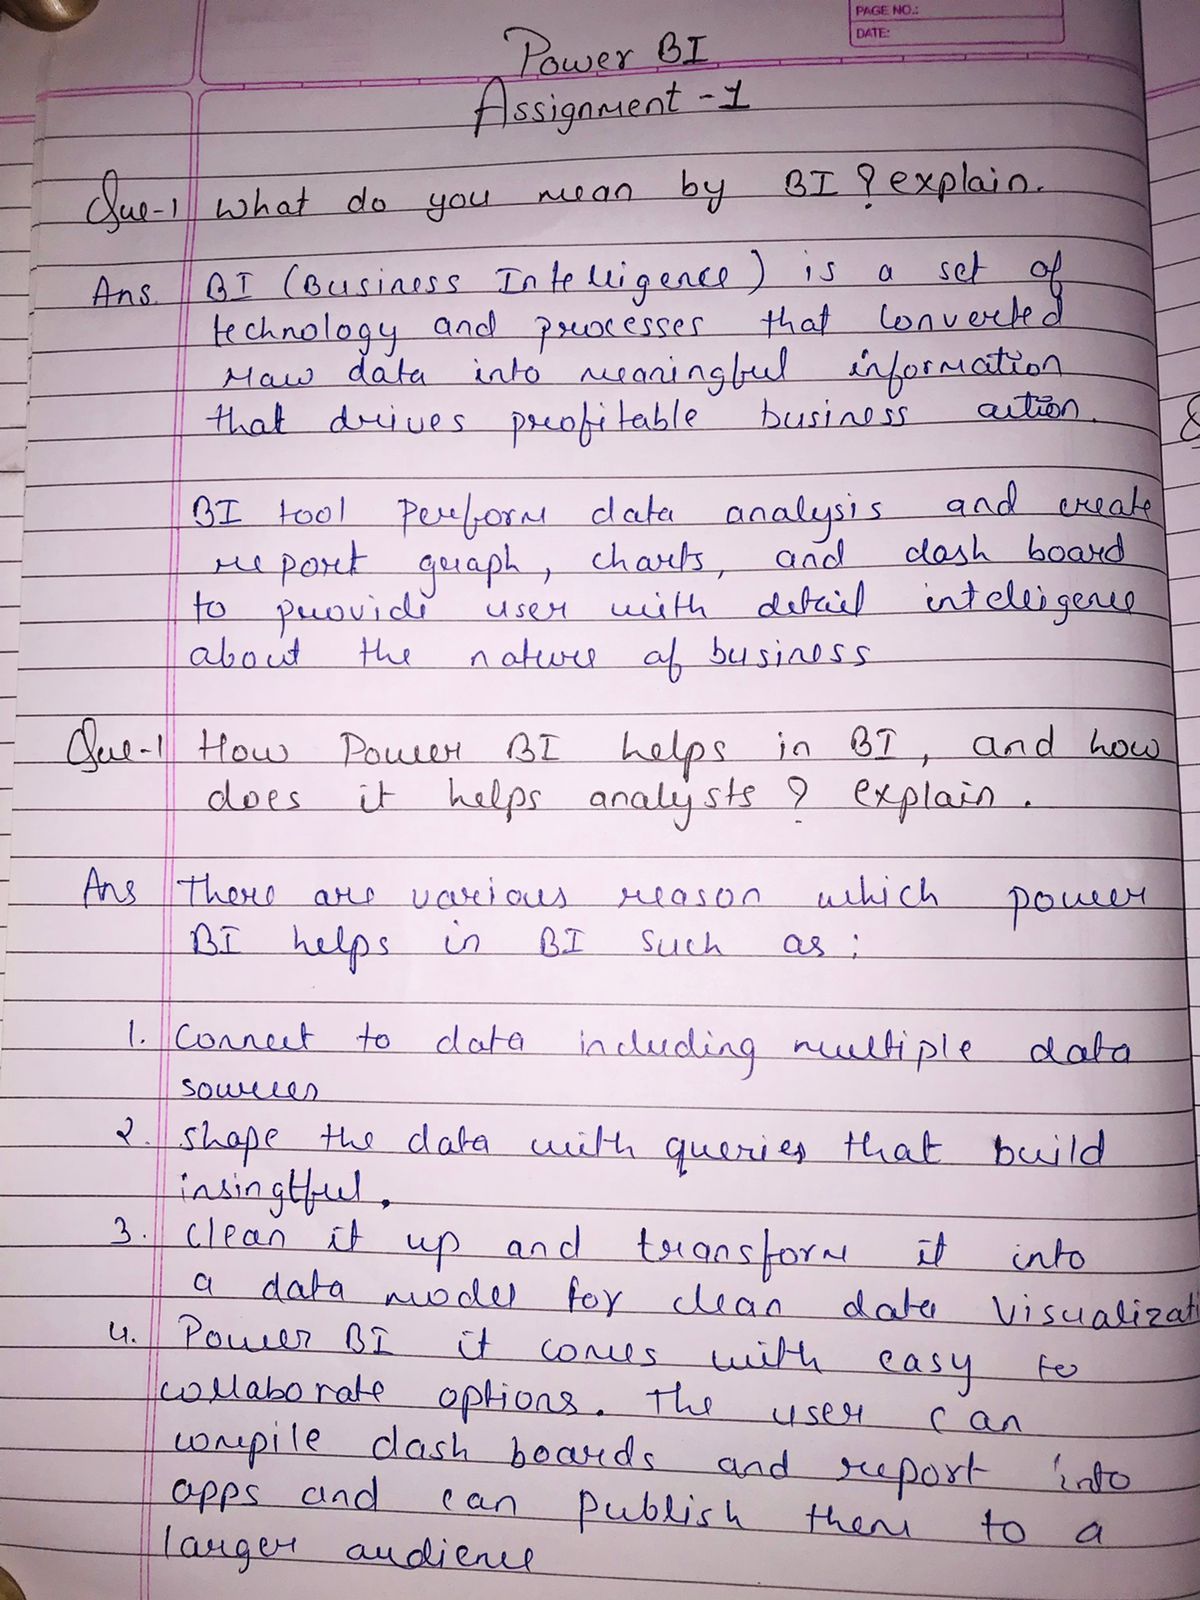 PAGE NO.:
DATE:
Power BI
Assignment - 1
Que-1 What do you mean by BI ? explain.
Ans. BI (Business Intelligence) is a set of
technology and processes that converted
raw data into meaningful information
that drives profitable business action.
BI tool Perform data analysis and create
report graph, charts, and dash board
to provide user with detail intelligence
about the nature of business
Que-1 How Power BI helps in BI, and how
does it helps analysts ? explain.
Ans there are various reason which power
BI helps in BI such as :
1. Connect to data including multiple data
sources
2. shape the data with queries that build
insingtful.
3. clean it up and transform it into
a data model for clean data visualizati
4. Power BI it comes with easy to
collaborate options. The user can
compile dash boards and report into
apps and can publish them to a
larger audience